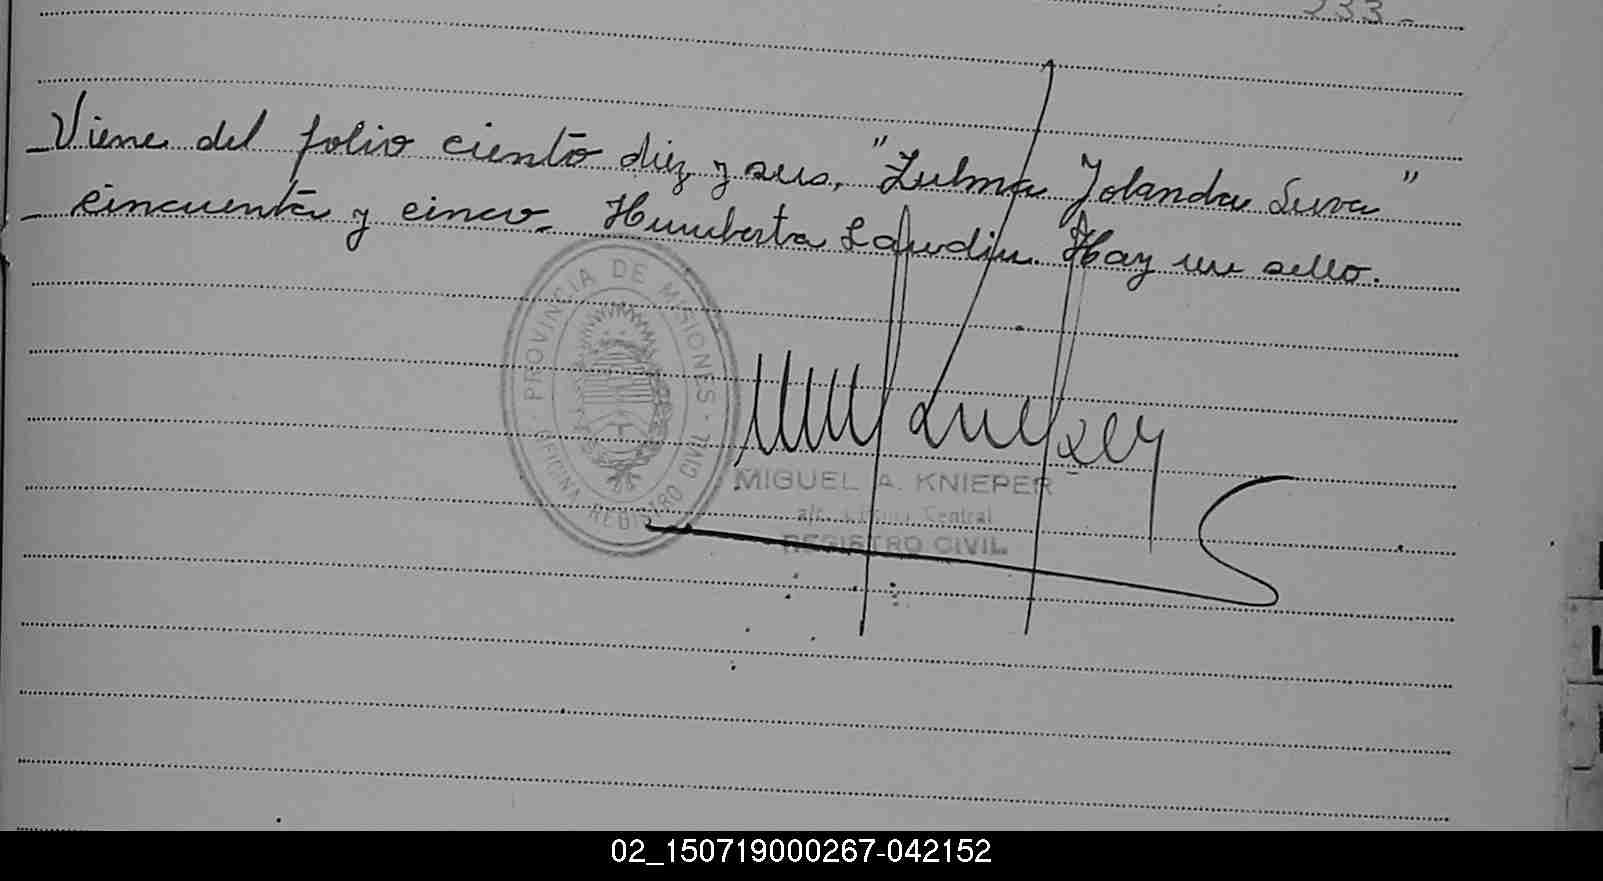 233-
Viene del folio ciento diez y seis, "Zulma Yolanda Silva"
cincuenta y cinco. Humberta Hay un sello.
PROVINCIA DE MISIONES
OFICINA REGISTRO CIVIL
MIGUEL A. KNIEPER
a/c. Central
REGISTRO CIVIL
02_150719000267-042152